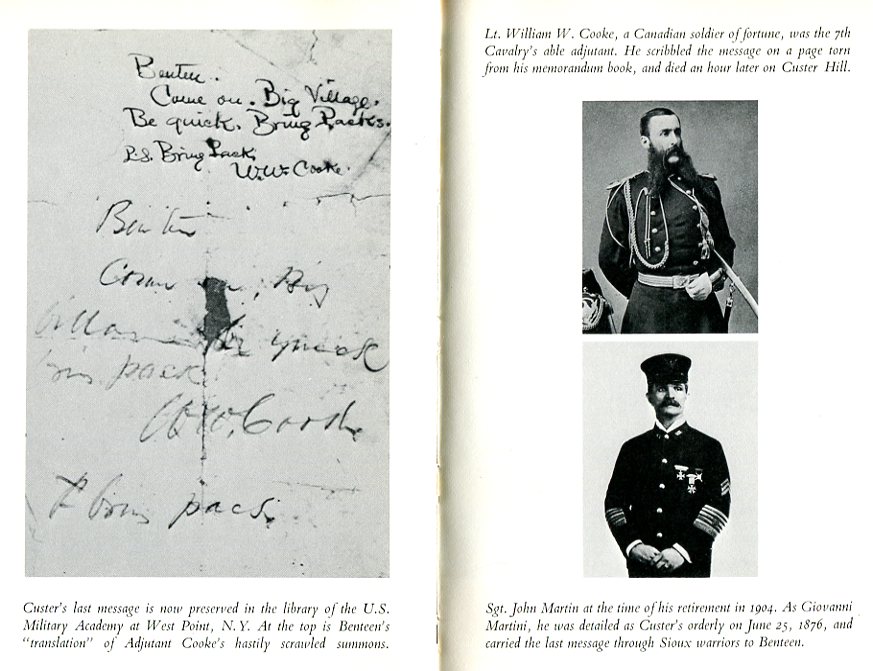 Benteen.
Come on. Big Village.
Be quick. Bring Packs.
P.S. Bring Pack.
W.W. Cooke.
Benteen
Come on, Big
Village be quick
bring packs
W.W. Cooke
P bring pacs.
Custer's last message is now preserved in the library of the U.S.
Military Academy at West Point, N.Y. At the top is Benteen's
"translation" of Adjutant Cooke's hastily scrawled summons.
Lt. William W. Cooke, a Canadian soldier of fortune, was the 7th
Cavalry's able adjutant. He scribbled the message on a page torn
from his memorandum book, and died an hour later on Custer Hill.
Sgt. John Martin at the time of his retirement in 1904. As Giovanni
Martini, he was detailed as Custer's orderly on June 25, 1876, and
carried the last message through Sioux warriors to Benteen.